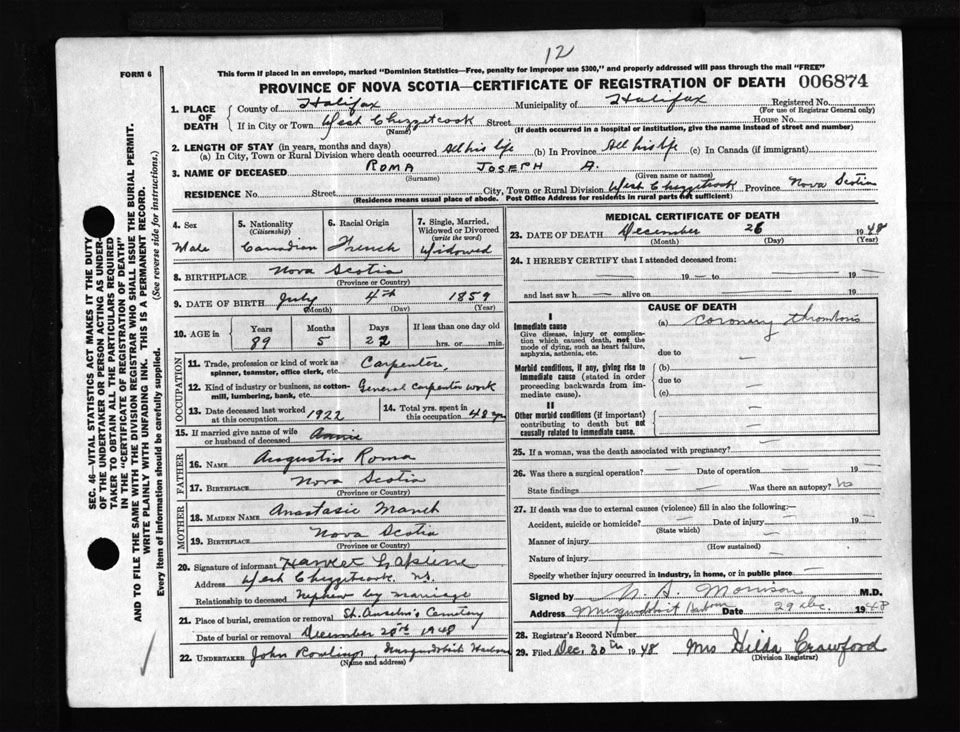 12
FORM 6
This form if placed in an envelope, marked "Dominion Statistics—Free, penalty for improper use $300," and properly addressed will pass through the mail "FREE"
PROVINCE OF NOVA SCOTIA—CERTIFICATE OF REGISTRATION OF DEATH 006874
1. PLACE OF DEATH County of Halifax Municipality of Halifax Registered No. (For use of Registrar General only)
If in City or Town West Chezzetcook Street House No.
(Name) (If death occurred in a hospital or institution, give the name instead of street and number)
2. LENGTH OF STAY (in years, months and days)
(a) In City, Town or Rural Division where death occurred All his life (b) In Province All his life (c) In Canada (if immigrant)
3. NAME OF DECEASED ROMA JOSEPH A.
(Surname) (Given name or names)
RESIDENCE No. Street City, Town or Rural Division West Chezzetcook Province Nova Scotia
(Residence means usual place of abode. Post Office Address for residents in rural parts not sufficient)
SEC. 46—VITAL STATISTICS ACT MAKES IT THE DUTY
OF THE UNDERTAKER OR PERSON ACTING AS UNDER-
TAKER TO OBTAIN ALL THE PARTICULARS REQUIRED
IN THE "CERTIFICATE OF REGISTRATION OF DEATH"
AND TO FILE THE SAME WITH THE DIVISION REGISTRAR WHO SHALL ISSUE THE BURIAL PERMIT.
WRITE PLAINLY WITH UNFADING INK. THIS IS A PERMANENT RECORD.
Every item of information should be carefully supplied. (See reverse side for instructions.)
4. Sex Male
5. Nationality (Citizenship) Canadian
6. Racial Origin French
7. Single, Married, Widowed or Divorced (write the word) Widowed
8. BIRTHPLACE Nova Scotia
(Province or Country)
9. DATE OF BIRTH July 4th 1859
(Month) (Day) (Year)
10. AGE in Years 89 Months 5 Days 22 If less than one day old hrs. or min.
OCCUPATION
11. Trade, profession or kind of work as spinner, teamster, office clerk, etc. Carpenter,
12. Kind of industry or business, as cotton-mill, lumbering, bank, etc. General carpenter work
13. Date deceased last worked at this occupation 1922
14. Total yrs. spent in this occupation 48 yrs
15. If married give name of wife or husband of deceased Annie
FATHER
16. NAME Augustin Roma
17. BIRTHPLACE Nova Scotia
(Province or Country)
MOTHER
18. MAIDEN NAME Anastasie
19. BIRTHPLACE Nova Scotia
(Province or Country)
20. Signature of informant
Address West Chezzetcook, N.S.
Relationship to deceased nephew by marriage
21. Place of burial, cremation or removal St. Anselm's Cemetery
Date of burial or removal December 28th 1948
22. UNDERTAKER John Rowlings, Musquodoboit Harbour
(Name and address)
MEDICAL CERTIFICATE OF DEATH
23. DATE OF DEATH December 26 1948
(Month) (Day) (Year)
24. I HEREBY CERTIFY that I attended deceased from:
19 to 19
and last saw h alive on 19
CAUSE OF DEATH
I
Immediate cause (a) coronary thrombosis
Give disease, injury or complication which caused death, not the mode of dying, such as heart failure, asphyxia, asthenia, etc.
due to
Morbid conditions, if any, giving rise to immediate cause (stated in order proceeding backwards from immediate cause).
(b)
due to
(c)
II
Other morbid conditions (if important) contributing to death but not causally related to immediate cause.
25. If a woman, was the death associated with pregnancy?
26. Was there a surgical operation? Date of operation 19
State findings Was there an autopsy? no
27. If death was due to external causes (violence) fill in also the following:—
Accident, suicide or homicide? Date of injury 19
(State which)
Manner of injury
(How sustained)
Nature of injury
Specify whether injury occurred in industry, in home, or in public place
Signed by Morrison M.D.
Address Musquodoboit Harbour Date 29 Dec. 1948
28. Registrar's Record Number
29. Filed Dec. 30th 1948 Mrs Hilda Crawford
(Division Registrar)